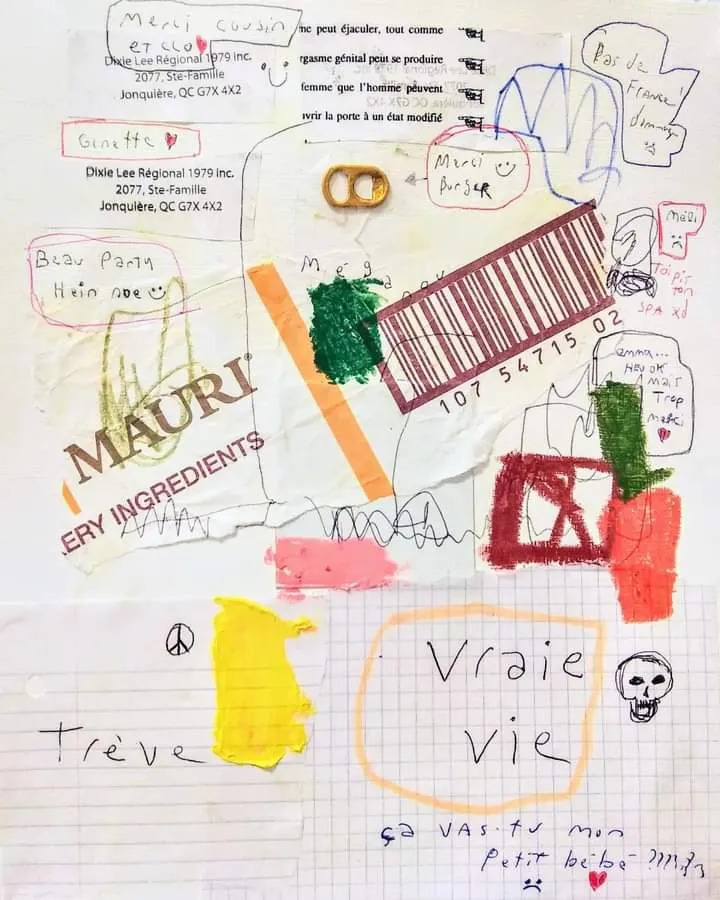 Merci cousin
et clo
Dixie Lee Régional 1979 inc.
2077, Ste-Famille
Jonquière, QC G7X 4X2
ne peut éjaculer, tout comme
rgasme génital peut se produire
femme que l'homme peuvent
vrir la porte à un état modifié
Pas de
France
dommage
Ginette
Dixie Lee Régional 1979 inc.
2077, Ste-Famille
Jonquière, QC G7X 4X2
Merci
Burger
Beau Party
Hein noe
Méli
Toi pis
ton
SPA xd
Még
107 54715 02
HEU OK
mais
Trop
merci
MAURI
ERY INGREDIENTS
Trève
Vraie
vie
ça vas-tu mon
Petit bébé